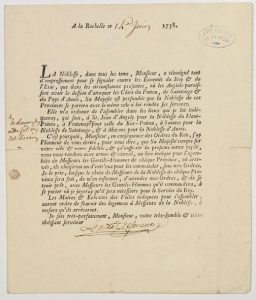 A la Rochelle ce 14 Juin 1758.
LA Noblesse, dans tous les tems, Monsieur, a témoigné tant
d'empressement pour se signaler contre les Ennemis du Roy & de
l'Etat, que dans les circonstances présentes, où les Anglois parois-
sent avoir le dessein d'attaquer les Côtes du Poitou, de Saintonge &
du Pays d'Aunis, Sa Majesté est persuadée que la Noblesse de ces
Provinces se portera avec le même zèle à lui rendre ses services.
Elle m'ordonne de m'assembler dans les lieux que je lui indi-
querois, qui sont, à St. Jean d'Angely pour la Noblesse du Haut-
Poitou, à Fontenay pour celle du Bas-Poitou, à Saintes pour la
Noblesse de Saintonge, & à Marans pour la Noblesse d'Aunis.
C'est pourquoi, Monsieur, en conséquence des Ordres du Roy, j'ai
l'honneur de vous écrire, pour vous dire, que Sa Majesté compte sur
votre zèle & votre fidélité, &
vous vous rendiez avec armes & cheval, au lieu indiqué pour l'assem-
blée de Messieurs les Gentils-hommes de chaque Province, où arri-
vés, ils choisiront un d'entr'eux pour les commander, sous mes Ordres.
Je te prie, lorsque le choix de Messieurs de la Noblesse de chaque Pro-
vince sera fait, de m'en informer, d'attendre mes Ordres, & de se
tenir prêt, avec Messieurs les Gentils-Hommes qu'il commandera, à
se porter où je jugerai qu'il sera nécessaire pour le Service du Roy.
Les Maires & Echevins des Villes indiquées pour s'assembler
auront ordre de fournir des logemens à Messieurs de la Noblesse, à
mesure qu'ils arriveront.
Je suis très-parfaitement, Monsieur, votre très-humble & très-
obéissant serviteur